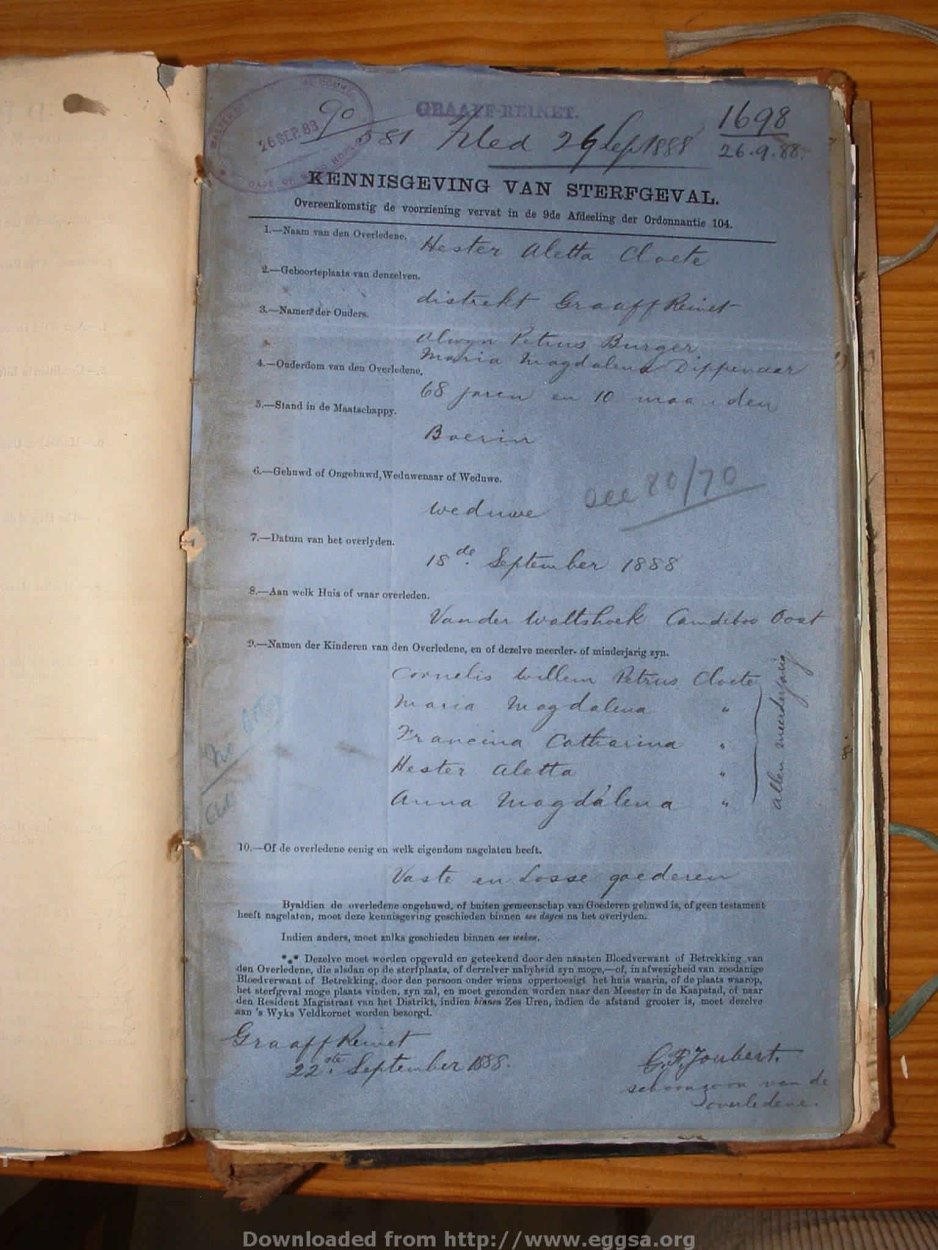 26 SEP. 83
90
GRAAFF-REINET.
1698
581 Filed 26 Sep 1888
26.9.88.
KENNISGEVING VAN STERFGEVAL.
Overeenkomstig de voorziening vervat in de 9de Afdeeling der Ordonnantie 104.
1.—Naam van den Overledene.
Hester Aletta Cloete
2.—Geboorteplaats van denzelven.
distrekt Graaff Reinet
3.—Namen der Ouders.
Alwyn Petrus Burger
Maria Magdalena Dippenaar
4.—Ouderdom van den Overledene.
68 jaren en 10 maanden
5.—Stand in de Maatschappy.
Boerin
6.—Gehuwd of Ongehuwd, Weduwenaar of Weduwe.
weduwe
see 80/70
7.—Datum van het overlyden.
18de. September 1888
8.—Aan welk Huis of waar overleden.
Van der Waltshoek Camdeboo Oost
9.—Namen der Kinderen van den Overledene, en of dezelve meerder- of minderjarig zyn.
Cornelis Willem Petrus Cloete
Maria Magdalena "
Francina Catharina "
Hester Aletta "
Anna Magdalena "
allen meerderjarig
10.—Of de overledene eenig en welk eigendom nagelaten heeft.
Vaste en Losse goederen
Byaldien de overledene ongehuwd, of buiten gemeenschap van Goederen gehuwd is, of geen testament
heeft nagelaten, moet deze kennisgeving geschieden binnen zes dagen na het overlyden.
Indien anders, moet zulks geschieden binnen zes weken.
*** Dezelve moet worden opgevuld en geteekend door den naasten Bloedverwant of Betrekking van
den Overledene, die alsdan op de sterfplaats, of derzelver nabyheid zyn moge,—of, in afwezigheid van zoodanige
Bloedverwant of Betrekking, door den persoon onder wiens oppertoezigt het huis waarin, of de plaats waarop,
het sterfgeval moge plaats vinden, zyn zal, en moet gezonden worden naar den Meester in de Kaapstad, of naar
den Resident Magistraat van het Distrikt, indien binnen Zes Uren, indien de afstand grooter is, moet dezelve
aan 's Wyks Veldkornet worden bezorgd.
Graaff Reinet
22ste. September 1888.
G. F. Joubert.
schoonzoon van de
overledene.
Downloaded from http://www.eggsa.org